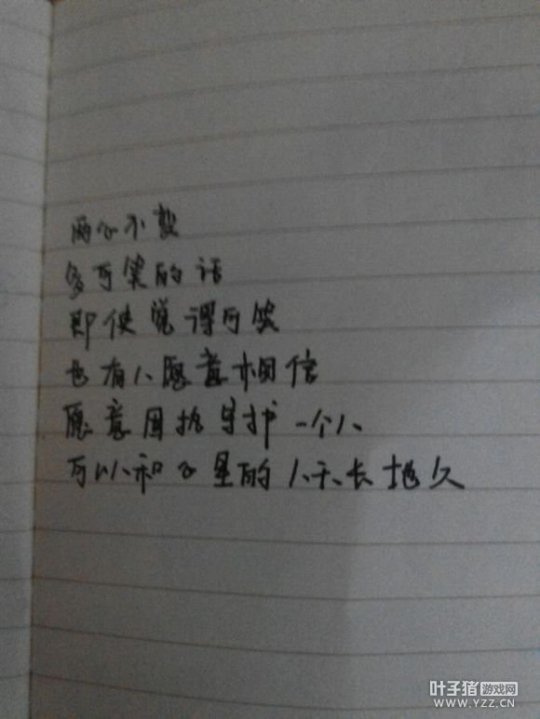 两心不疑
多可笑的话
即使觉得可笑
也有人愿意相信
愿意固执守护一个人
可以和心里的人天长地久
叶子猪游戏网
WWW.YZZ.CN